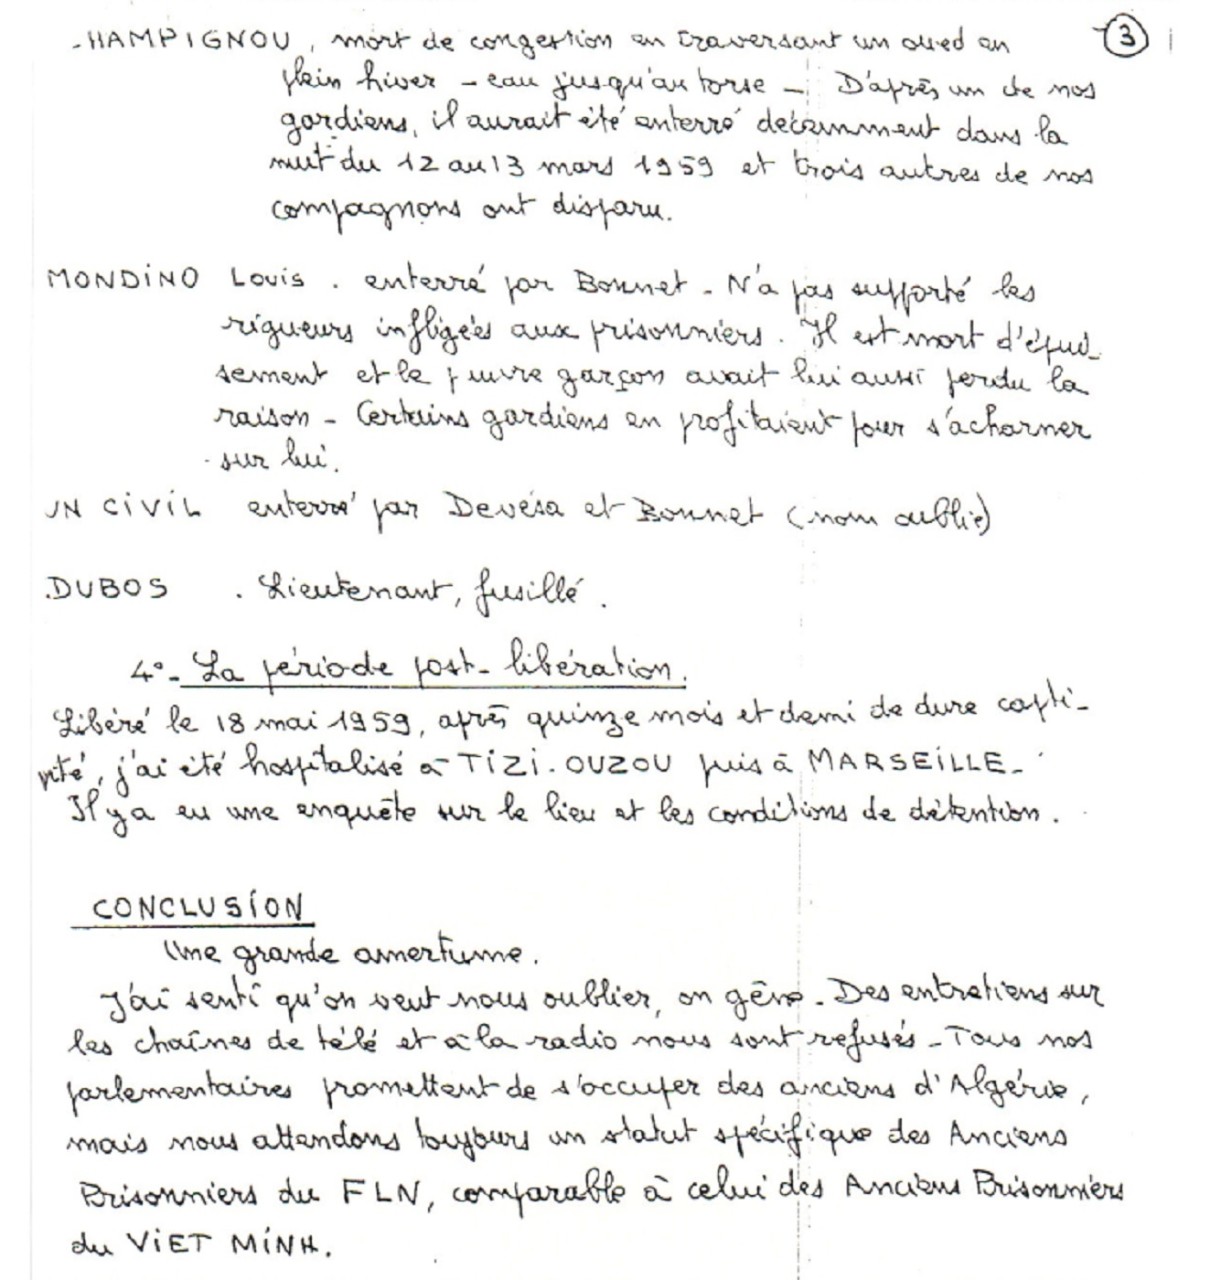 HAMPIGNOU, mort de congestion en traversant un oued en
③
plein hiver - eau jusqu'au torse - D'après un de nos
gardiens, il aurait été enterré décemment dans la
nuit du 12 au 13 mars 1959 et trois autres de nos
compagnons ont disparu.
MONDINO Louis . enterré par Bonnet - N'a pas supporté les
rigueurs infligées aux prisonniers. Il est mort d'épui-
sement et le pauvre garçon avait lui aussi perdu la
raison - Certains gardiens en profitaient pour s'acharner
sur lui.
UN CIVIL enterré par Devésa et Bonnet (nom oublié)
DUBOS . Lieutenant, fusillé.
4° - La période post-libération.
Libéré le 18 mai 1959, après quinze mois et demi de dure capti-
vité, j'ai été hospitalisé à TIZI-OUZOU puis à MARSEILLE -
Il y a eu une enquête sur le lieu et les conditions de détention.
CONCLUSION
Une grande amertume.
J'ai senti qu'on veut nous oublier, on gêne - Des entretiens sur
les chaînes de télé et à la radio nous sont refusés - Tous nos
parlementaires promettent de s'occuper des anciens d'Algérie,
mais nous attendons toujours un statut spécifique des Anciens
Prisonniers du FLN, comparable à celui des Anciens Prisonniers
du VIET MINH.